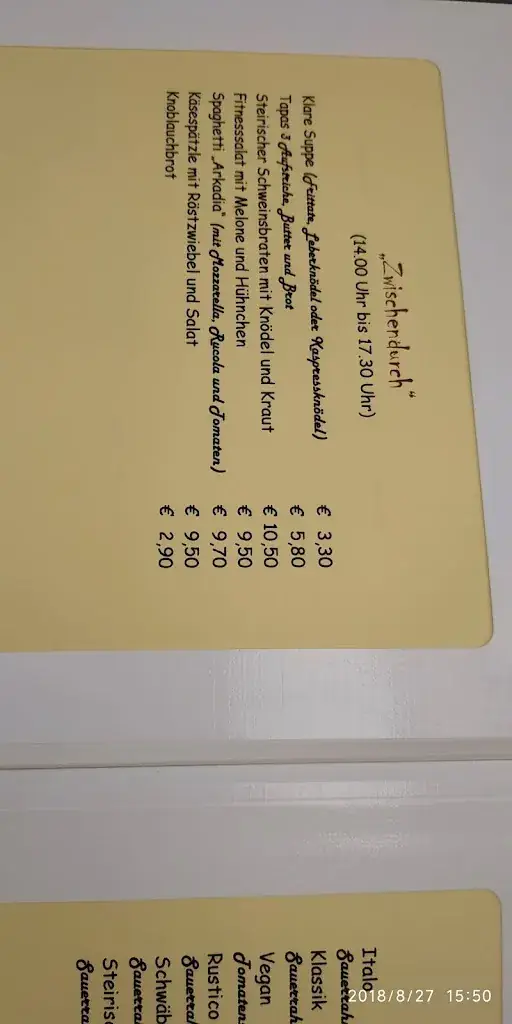 „Zwischendurch"
(14.00 Uhr bis 17.30 Uhr)
Klare Suppe (Frittate, Leberknödel oder Kaspressknödel) € 3,30
Tapas 3 Aufstriche, Butter und Brot € 5,80
Steirischer Schweinsbraten mit Knödel und Kraut € 10,50
Fitnesssalat mit Melone und Hühnchen € 9,50
Spaghetti „Arkadia" (mit Mozzarella, Rucola und Tomaten) € 9,70
Käsespätzle mit Röstzwiebel und Salat € 9,50
Knoblauchbrot € 2,90
Italo
Sauerrah
Klassik
Sauerrah
Vegan
Tomatens
Rustico
Sauerra
Schwäb
Sauerra
Steiris
Sauerra
2018/8/27 15:50